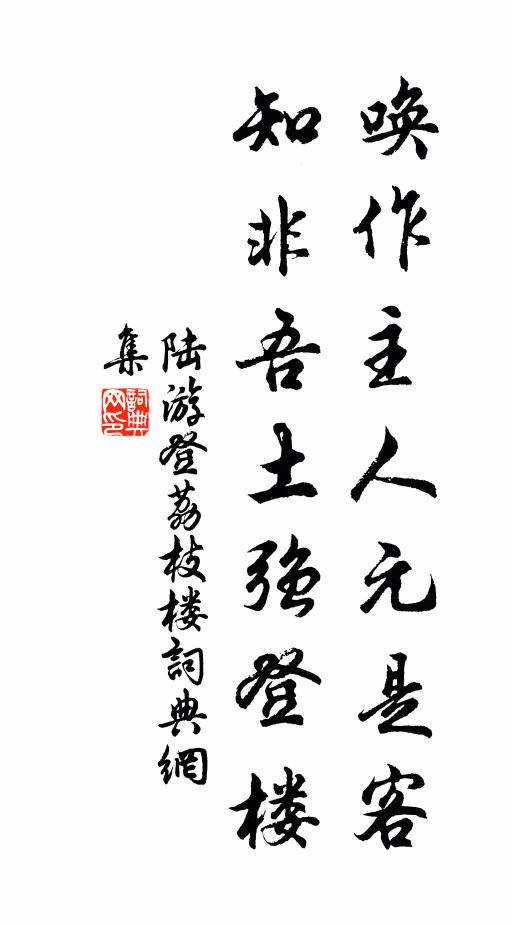 唤作主人元是客
知非吾土强登楼
陆游登荔枝楼词典網
集
詞典网印